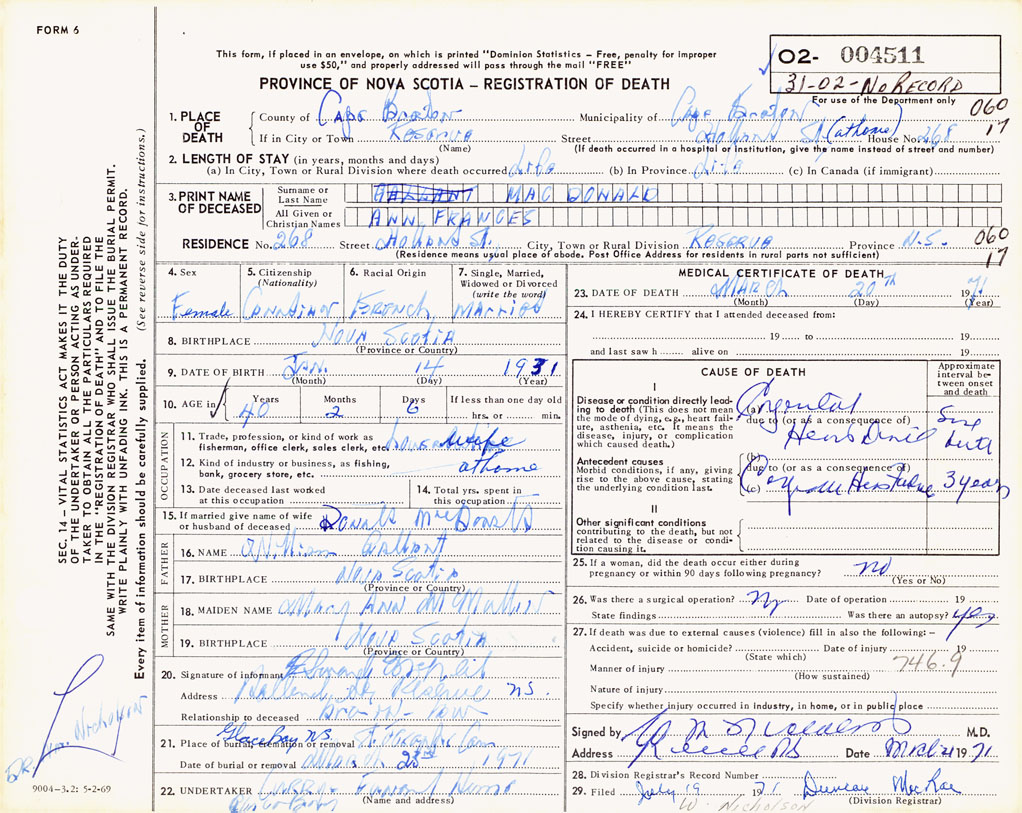 FORM 6
This form, if placed in an envelope, on which is printed "Dominion Statistics - Free, penalty for improper
use $50," and properly addressed will pass through the mail "FREE"
PROVINCE OF NOVA SCOTIA - REGISTRATION OF DEATH
02- 004511
31-02-NO RECORD
For use of the Department only
060
17
1. PLACE OF DEATH
County of Cape Breton Municipality of Cape Breton
If in City or Town Reserve Street Holland St. (at home) House No. 268
(Name) (If death occurred in a hospital or institution, give the name instead of street and number)
2. LENGTH OF STAY (in years, months and days)
(a) In City, Town or Rural Division where death occurred Life (b) In Province Life (c) In Canada (if immigrant)
3. PRINT NAME OF DECEASED
Surname or Last Name GALLANT MAC DONALD
All Given or Christian Names ANN FRANCES
RESIDENCE No. 268 Street Holland St. City, Town or Rural Division Reserve Province N.S.
(Residence means usual place of abode. Post Office Address for residents in rural parts not sufficient)
060
17
4. Sex 5. Citizenship (Nationality) 6. Racial Origin 7. Single, Married, Widowed or Divorced (write the word)
Female Canadian French Married
8. BIRTHPLACE Nova Scotia
(Province or Country)
9. DATE OF BIRTH Jan. 14 1931
(Month) (Day) (Year)
10. AGE in Years Months Days If less than one day old
40 2 6 hrs. or min.
OCCUPATION
11. Trade, profession, or kind of work as fisherman, office clerk, sales clerk, etc. housewife
12. Kind of industry or business, as fishing, bank, grocery store, etc. at home
13. Date deceased last worked at this occupation
14. Total yrs. spent in this occupation
15. If married give name of wife or husband of deceased Donald MacDonald
FATHER
16. NAME William Gallant
17. BIRTHPLACE Nova Scotia
(Province or Country)
MOTHER
18. MAIDEN NAME Mary Ann
19. BIRTHPLACE Nova Scotia
(Province or Country)
20. Signature of informant
Address Holland St. Reserve N.S.
Relationship to deceased Bro-in-law
21. Place of burial, cremation or removal Glace Bay N.S.
Date of burial or removal March 23rd 1971
22. UNDERTAKER Funeral Home
(Name and address)
MEDICAL CERTIFICATE OF DEATH
23. DATE OF DEATH March 20th 1971
(Month) (Day) (Year)
24. I HEREBY CERTIFY that I attended deceased from:
19 to 19
and last saw h alive on 19
CAUSE OF DEATH
Approximate interval between onset and death
I
Disease or condition directly leading to death (This does not mean the mode of dying, e.g., heart failure, asthenia, etc. It means the disease, injury, or complication which caused death.)
(a) Congenital
due to (or as a consequence of)
Since birth
Antecedent causes
Morbid conditions, if any, giving rise to the above cause, stating the underlying condition last.
(b)
due to (or as a consequence of)
(c) Heart Failure 3 years
II
Other significant conditions contributing to the death, but not related to the disease or condition causing it.
25. If a woman, did the death occur either during pregnancy or within 90 days following pregnancy? no
(Yes or No)
26. Was there a surgical operation? No Date of operation 19
State findings Was there an autopsy? yes
27. If death was due to external causes (violence) fill in also the following: -
Accident, suicide or homicide? Date of injury 19
(State which)
746.9
Manner of injury
(How sustained)
Nature of injury
Specify whether injury occurred in industry, in home, or in public place
Signed by M.D.
Address Reserve NS Date March 21 1971
28. Division Registrar's Record Number
29. Filed July 19 1971 Duncan MacRae
(Division Registrar)
W. Nicholson
SEC. 14 - VITAL STATISTICS ACT MAKES IT THE DUTY
OF THE UNDERTAKER OR PERSON ACTING AS UNDERTAKER TO OBTAIN ALL THE PARTICULARS REQUIRED
IN THE "REGISTRATION OF DEATH" AND TO FILE THE
SAME WITH THE DIVISION REGISTRAR WHO SHALL ISSUE THE BURIAL PERMIT.
WRITE PLAINLY WITH UNFADING INK. THIS IS A PERMANENT RECORD.
Every item of information should be carefully supplied. (See reverse side for instructions.)
DR. Nicholson
9004-3.2: 5-2-69